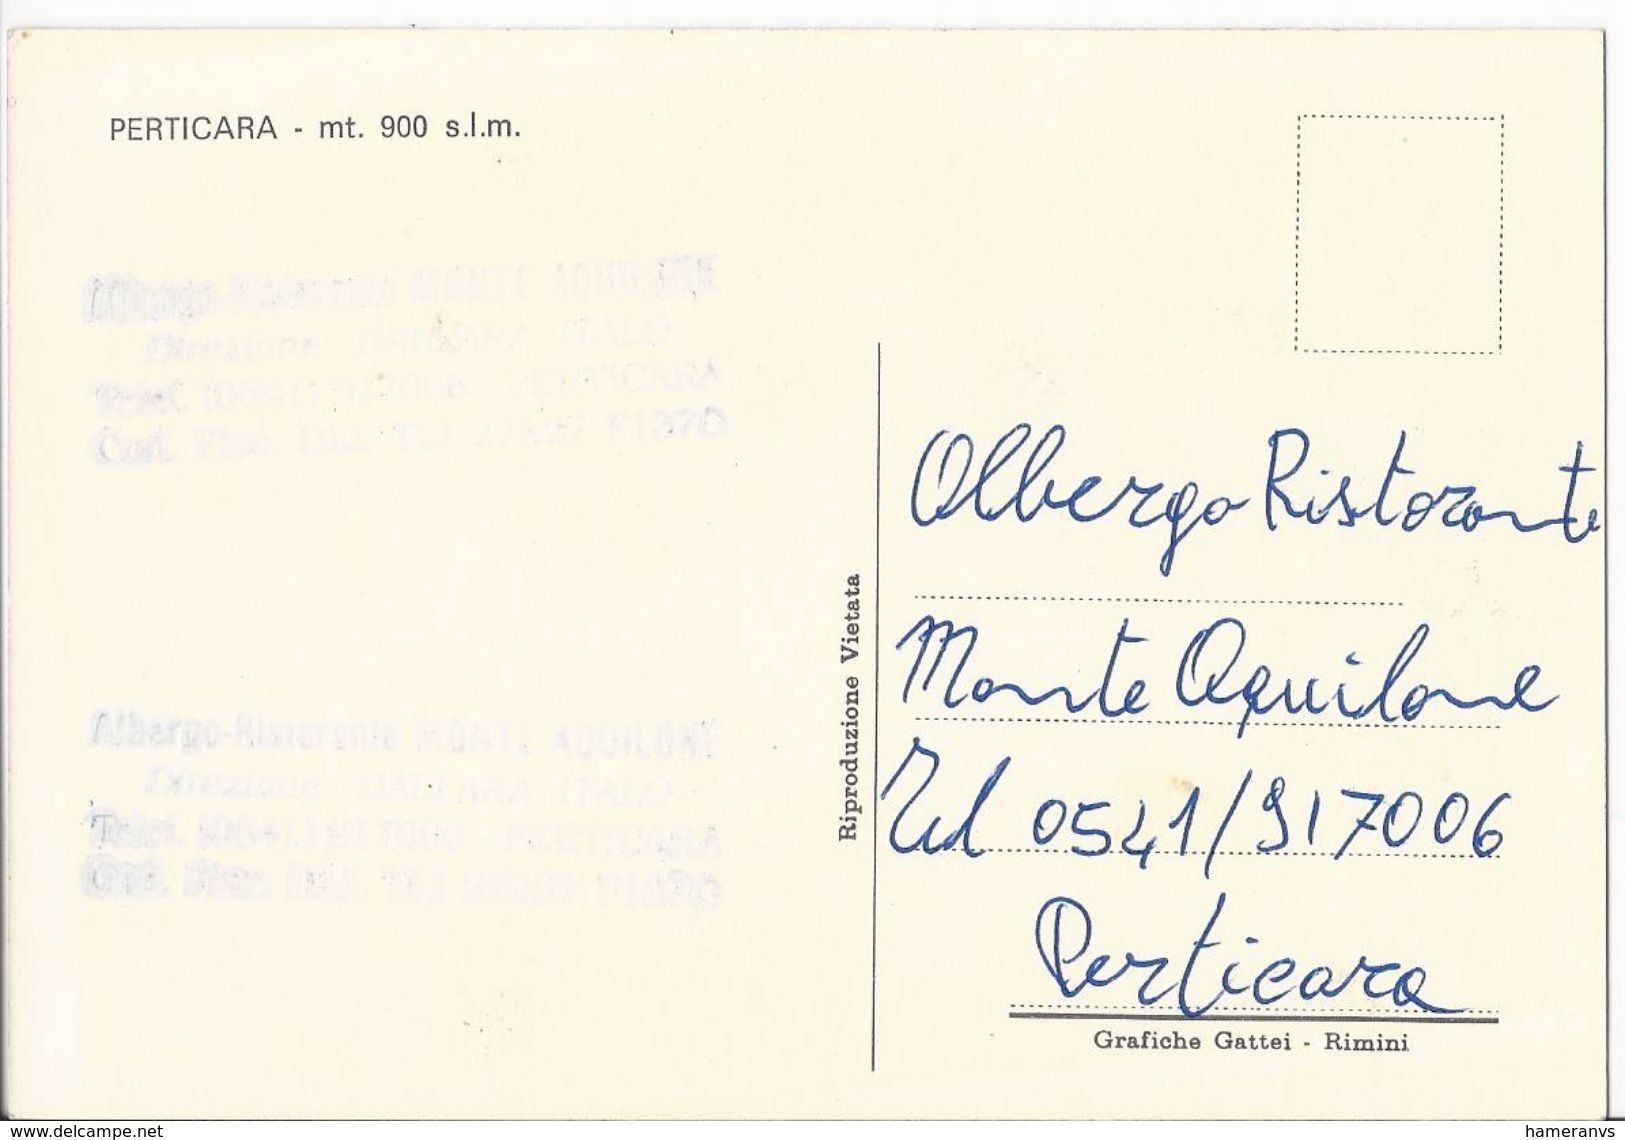 PERTICARA - mt. 900 s.l.m.
Albergo-Ristorante MONTE AQUILONE
Direzione: DALLARA ITALO
Telef. (0541) 917006 PERTICARA
Cod. Fisc. DLL TLI 27A27 F137G
Albergo-Ristorante MONTE AQUILONE
Direzione: DALLARA ITALO
Telef. (0541) 917006 PERTICARA
Cod. Fisc. DLL TLI 27A27 F137G
Riproduzione Vietata
Albergo Ristorante
Monte Aquilone
Tel 0541/917006
Perticara
Grafiche Gattei - Rimini
www.delcampe.net
hameranvs